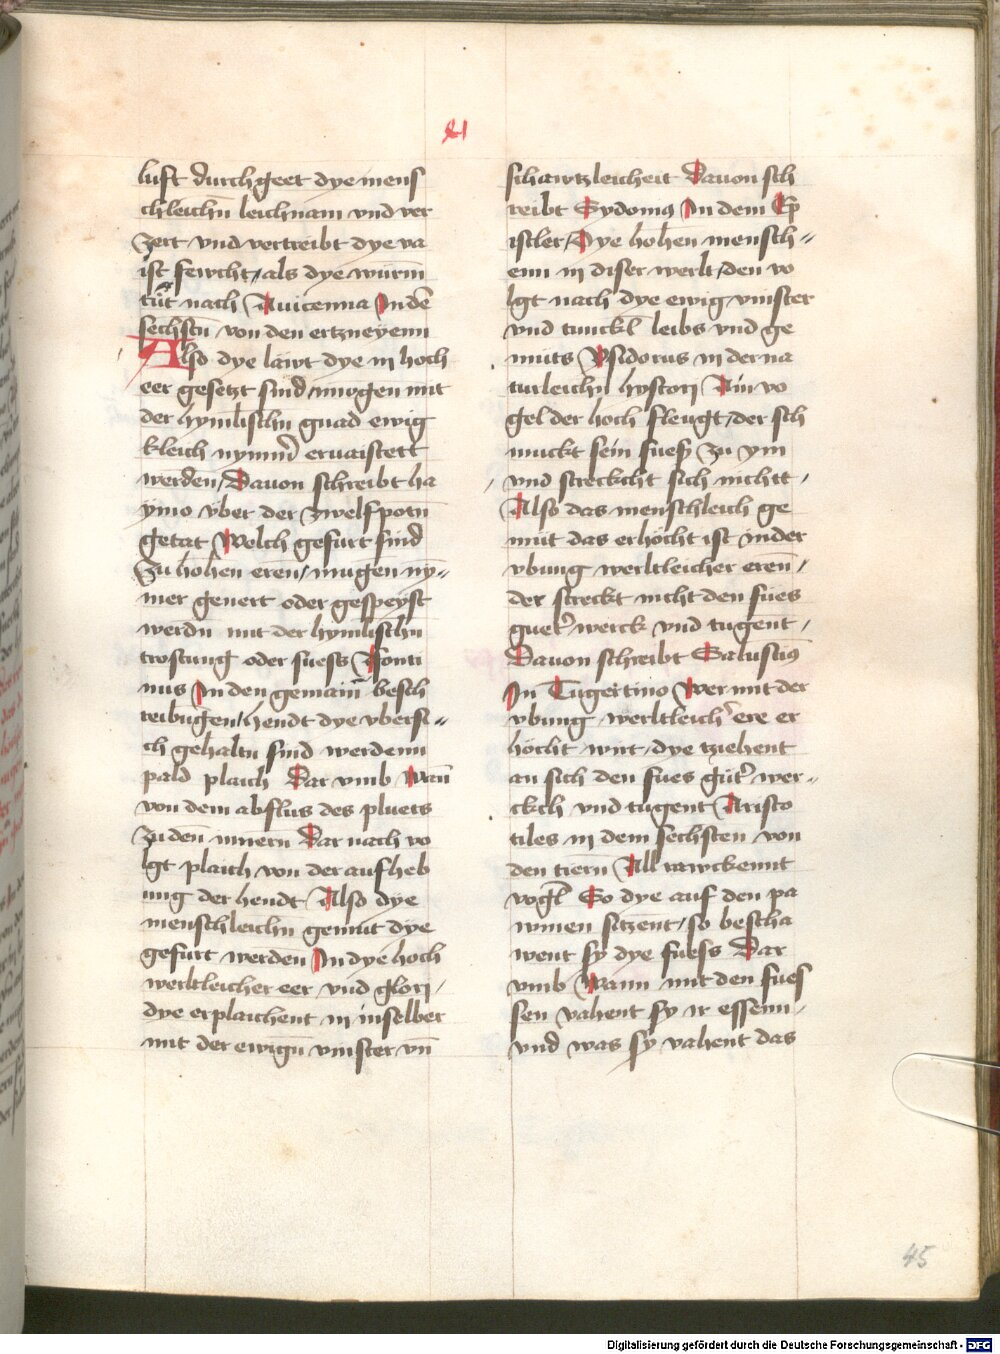 xl
luft durchgeet dye mens
chleichn̄ leichnam vnd ver
zert vnd vertreibt dye va
ist fewcht, als dye würm̄
tut nach Auicenna In dē
sechstn̄ von den ertzneyenn
Also dye läwt dye in hoch
eer gesetzt sind mogen mit
der hymlischn̄ gnad ewig
kleich nymm̄ ervaistett
werden, Davon schreibt ha
ymo vber der zwelfpotn̄
getat Welch gefurt sind
zu hohen eren, mugen ny=
mer genert oder gespeyst
werdn̄ mit der hymlischn̄
trostung oder suess Fonti
nus In den gemain̄ besch
reibūgen, hendt dye vbersi=
ch gehaltn̄ sind werdenn
pald plaich Dar vmb Wan̄
von dem abflus des pluets
zu den̄ innern̄ Dar nach vo
lgt plaich von der aufheb
ung der hendt Also dye
menschleichn̄ gemut dye
gefurt werden̄ In dye hoch
werltleicher eer vnd glori,
dye erplaichent in inselber
mit der ewign̄ vinster vn̄
schwrtzleicheit Davon sch
reibt Sydoniꝰ In dem Ep
istler, Dye hohen mensch=
enn in diser werlt, den vo
lgt nach dye ewig vinster
vnd tunckl̄ leibs vnd ge
muts Ysidorus in der na
turleichn̄ hystori Ain vo
gel der hoch fleugt, der sch
muckt sein fuess zu ym
vnd streckcht sich nichtt,
Also das menschleich ge
mut das erhöcht ist in der
vbung werltleicher eren̄,
der streckt nicht den fues
guet̉ werck vnd tugent,
Davon schreibt Salustiꝰ
In Tugertino Wer mit der
vbung werltleich̉ ere er
höcht wirt, dye tziehent
an sich den fues güt̉ wer=
ckch vnd tugent Aristo
tiles in dem sechsten von
den tiern̄ All rawckennt
vogl̄ So dye auf den pa
wmen sitzent, so bescha
went sy dye fuess Dar
vmb Wann mit den fues
sen vahent sy ir essenn,
vnd was sy vahent das
45
Digitalisierung gefördert durch die Deutsche Forschungsgemeinschaft - DFG